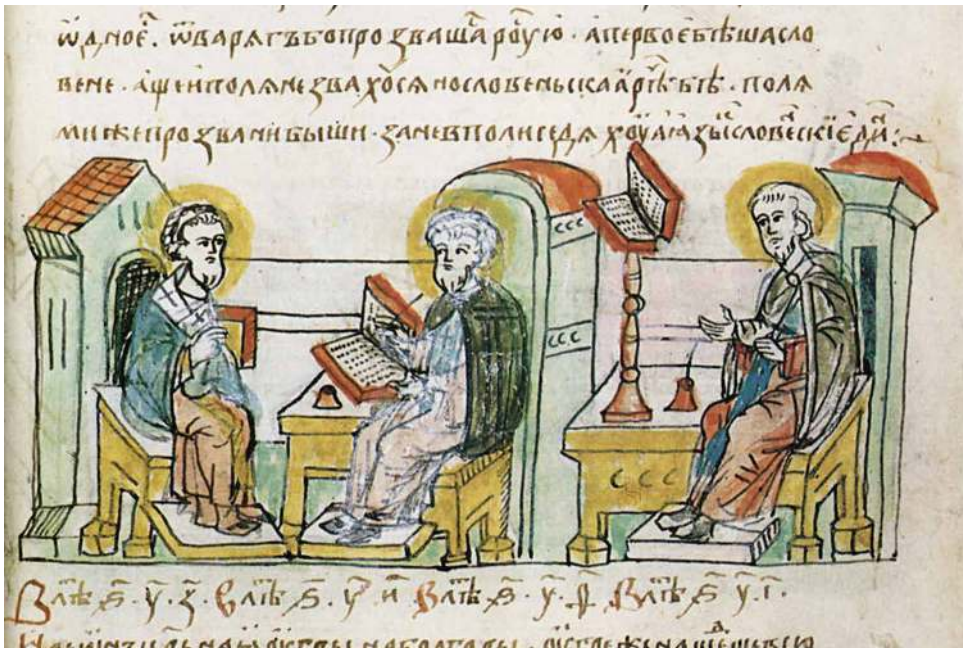 ѡ҆дноє҆. ѿварягъбопрозвашаⷭ҇роусю · апервоєбѣшасло
вене · ащеиполянезвахоⷭ҇ся нословеньскаарѣⷱ҇бѣ · поля
мижепрозванибыши · заневполиседяхоу аꙗзыⷦ҇словеⷭ҇скїєдиⷩ҇ :~
Влⷮѣ ѕ҃ · у҃ · з҃ · Влⷮѣ ѕ҃ · у҃ · и҃ Влⷮѣ ѕ҃ · у҃ · ѳ҃ · Влⷮѣ ѕ҃ у҃ · і҃ ·